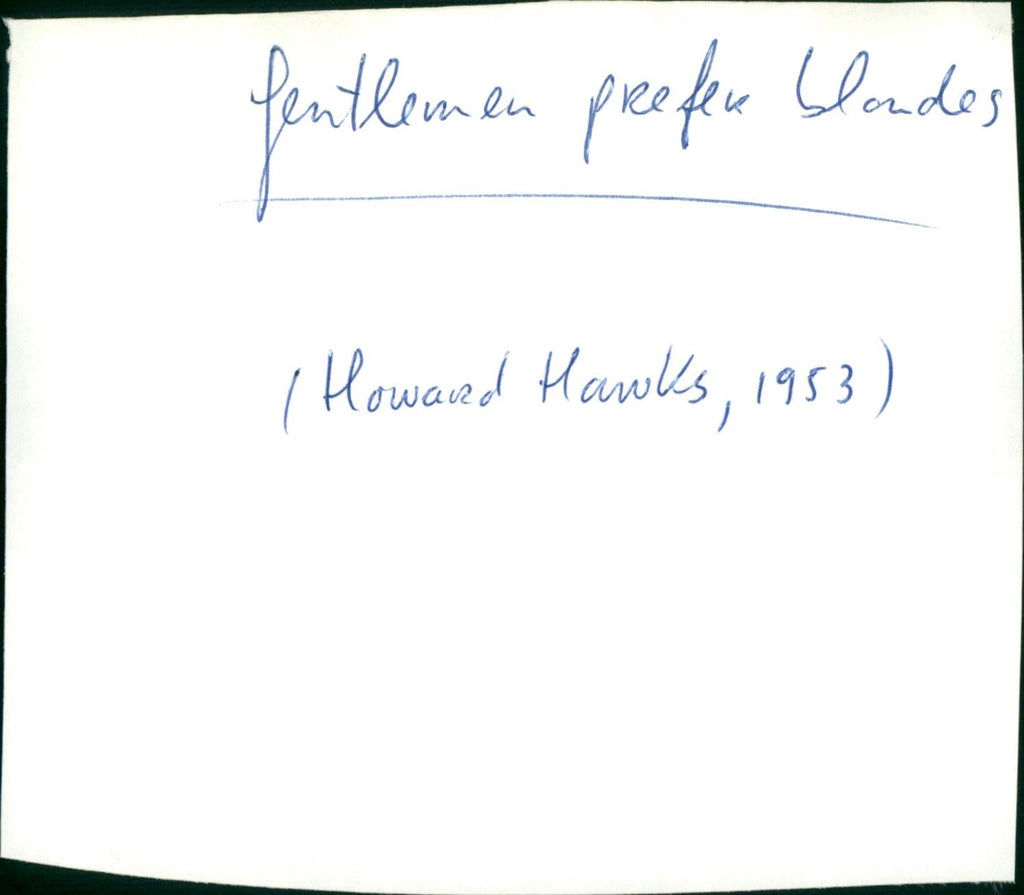 Gentlemen prefer blondes
(Howard Hawks, 1953)